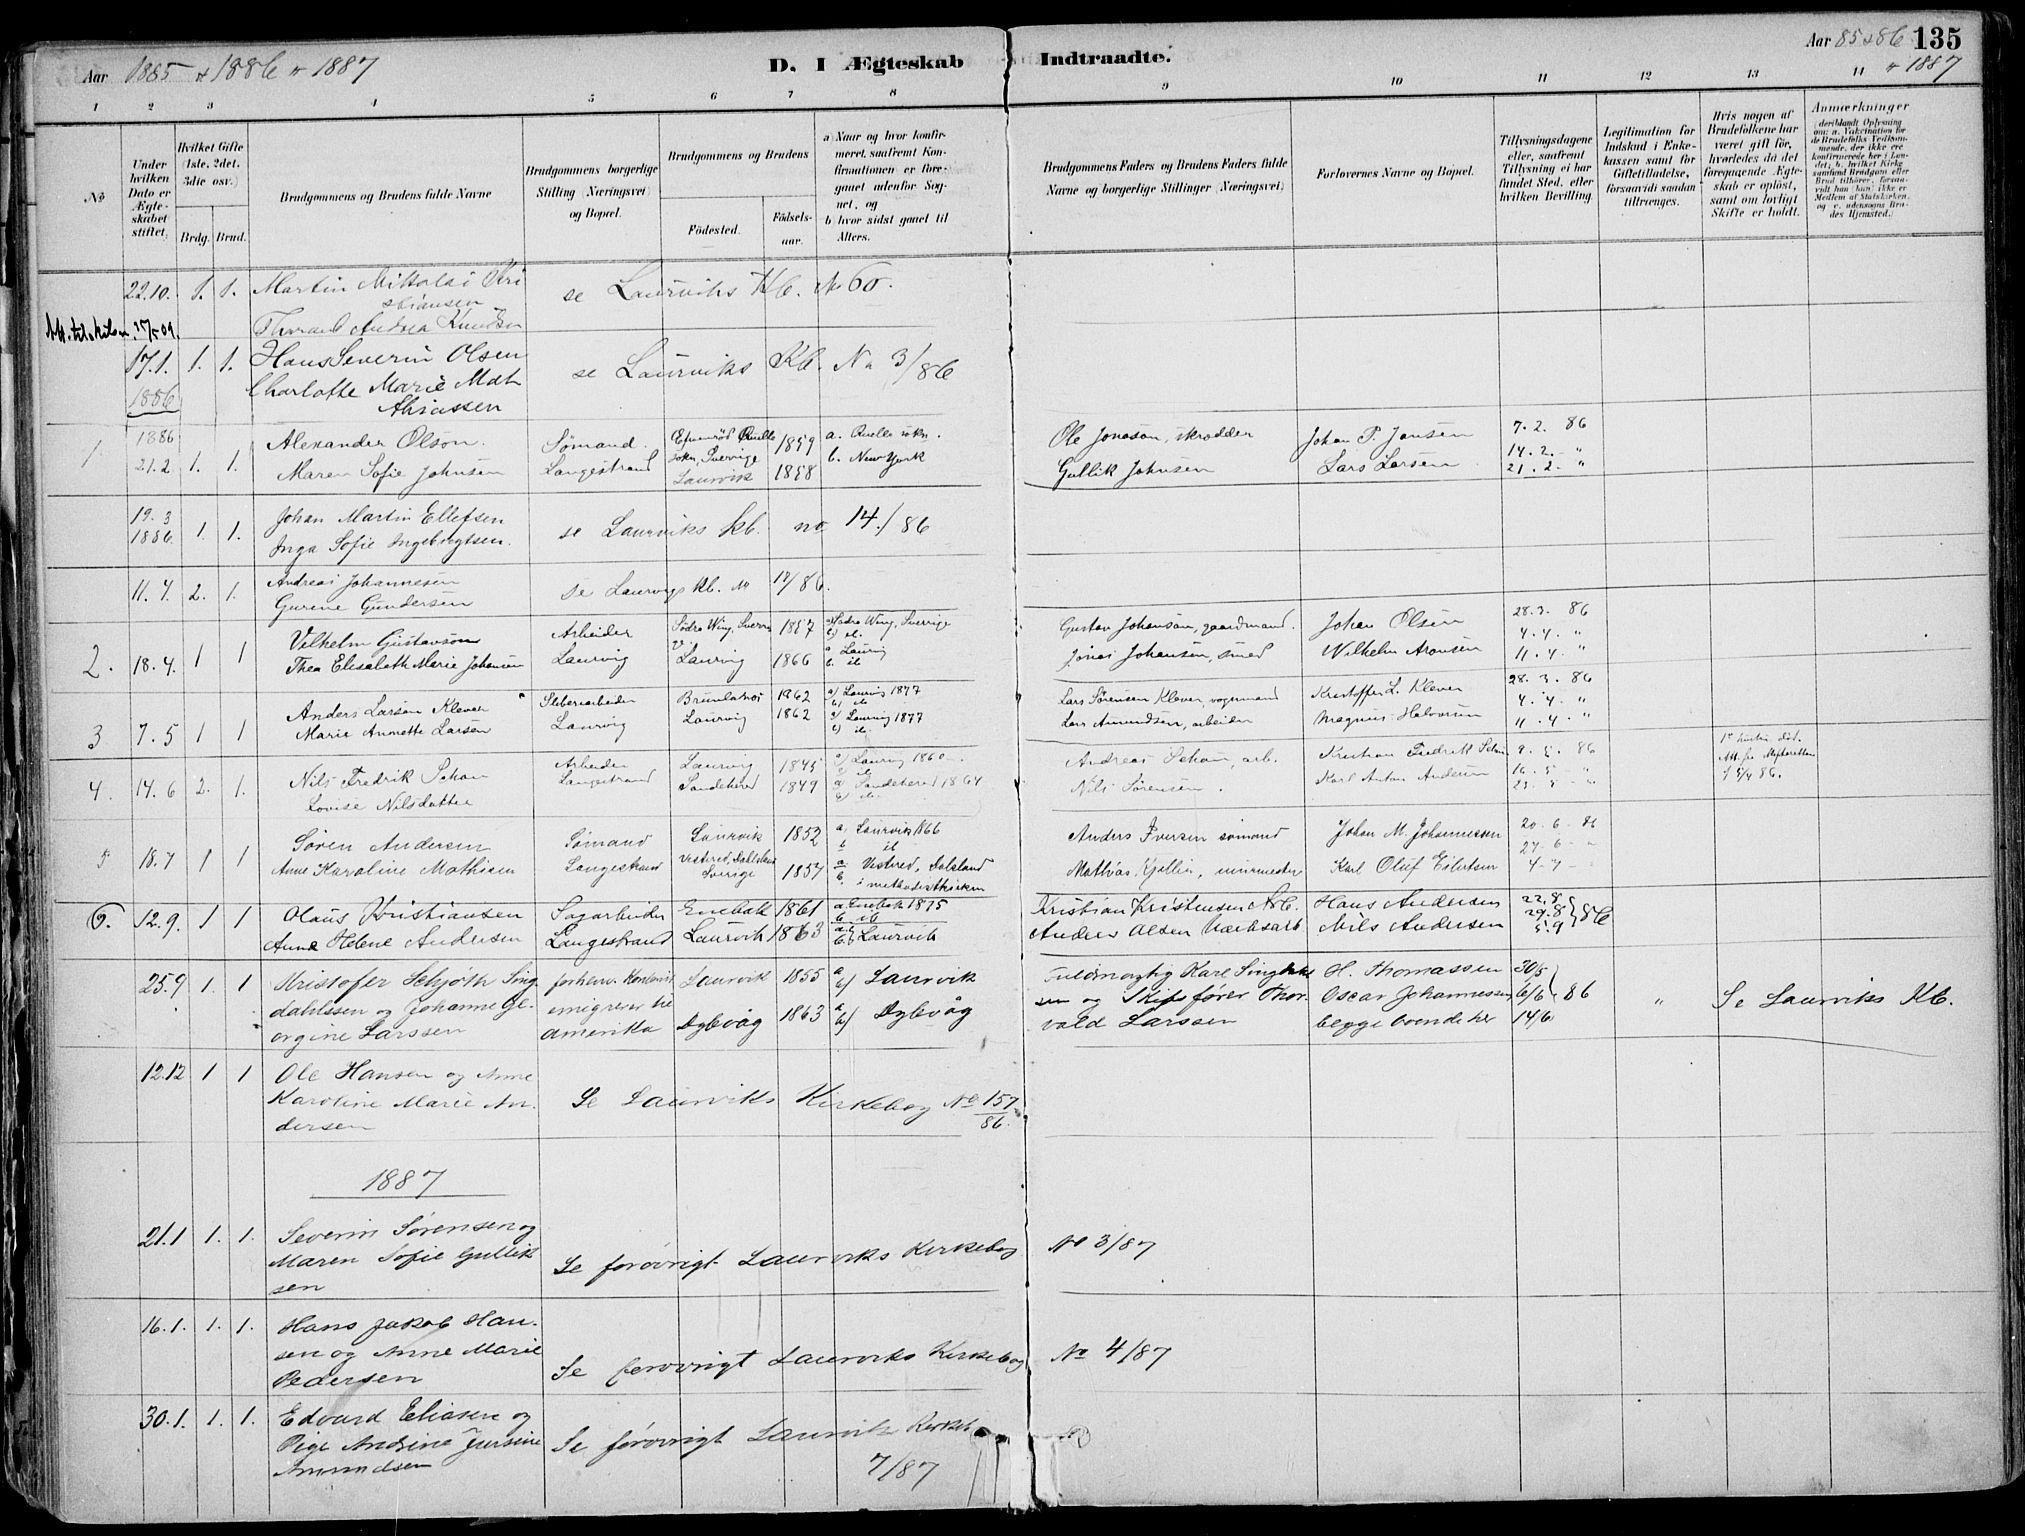 Aar 1885 & 1886 & 1887
D. I Ægteskab Indtraadte.
Aar 85 & 86 135
& 1887
1 2 3 4 5 6 7 8 9 10 11 12 13 14
No
Under hvilken Dato er Ægteskabet stiftet.
Hvilket Gifte (1ste, 2det, 3die osv.)
Brdg. Brud.
Brudgommens og Brudens fulde Navne
Brudgommens borgerlige Stilling (Næringsvei) og Bopæl.
Brudgommens og Brudens
Fødested. Fødselsaar.
a) Naar og hvor konfirmeret, saafremt Konfirmationen er foregaaet udenfor Sognet, og
b) hvor sidst gaaet til Alters.
Brudgommens Faders og Brudens Faders fulde Navne og borgerlige Stillinger (Næringsvei)
Forlovernes Navne og Bopæl.
Tillysningsdagene eller, saafremt Tillysning ei har fundet Sted, efter hvilken Bevilling.
Legitimation for Indskud i Enkekassen samt for Giftetilladelse, forsaavidt saadan tiltrænges.
Hvis nogen af Brudefolkene har været gift før, hvorledes da det foregaaende Ægteskab er opløst, samt om lovligt Skifte er holdt.
Anmærkninger
22.10. 1. 1. Martin Nikolai Kristiansen
se Laurviks Kb. No 60.
17.1. 1. 1. Hans Severin Olsen
se Laurviks Kb. No 3/86
1886 Charlotte Marie Mathiassen
1 1886 Alexander Olson. Sømand. 1859 a. Qvelle sokn.
Ole Jonason, skrædder Johan P. Jansen 7.2. 86
21.2 1. 1. Maren Sofie Johnsen Langestrand Laurvik 1858 b. New York
Gullik Johnsen Lars Larsen 14.2. "
21.2. "
19.3 1886. 1. 1. Johan Martin Ellefsen
Inga Sofie Ingebrigtsen.
se Laurviks kb. no. 14./86
11.4. 2. 1. Andreas Johannesen
Gurine Gundersen
se Laurvigs kb. No 17/86.
2. 18.4. 1 1 Vilhelm Gustavson Arbeider Södra Wing, Sverige 1857 a) Södra Wing, Sverige
Gustav Johanson, gaardmand. Johan Olsen 28.3. 86
Thea Elisabeth Marie Johansen Laurvig Laurvig 1866 a Laurvig
Jonas Johansen, smed Wilhelm Aronsen 4.4. "
11.4. "
3 7.5 1 1 Anders Larsen Klever Sliberiarbeider Brunlanæs 1862 a) Laurvig 1877
Lars Sørensen Klever, vognmand Kristoffer L. Klever 28.3. 86
Marie Annette Larsen Laurvig Laurvig 1862 a) Laurvig 1877
Lars Amundsen, arbeider Magnus Halvorsen 4.4. "
11.4. "
4. 14.6 2. 1. Nils Fredrik Schou Arbeider Laurvig 1845 a) Laurvig 1860
Andreas Schou, arb. Kristian Fredrik Schou 9.5. 86
Lovise Nilsdatter Langestrand Sandeherred 1849 a) Sandeherred 1864
Nils Sørensen. Karl Anton Andersen 16.5 "
23.5 "
5 18.7 1 1 Søren Andersen Sømand Laurvik 1852 a) Laurvik 1866
Anders Iversen sømand Johan M. Johannessen 20-6-86
Anne Karoline Mathisen Langestrand Sverige 1857 a Vestred, Dalsland
b. i methodistkirken
Mathias Kjellin, murmester Karl Oluf Eilertsen 27-6- "
4-7-
6. 12.9. 1 1 Olaus Kristiansen Sagarbeider Enebak 1861 a Enebak 1875
Kristian Kristensen Arb. Hans Andersen 22.8
Anne Helene Andersen Langestrand Laurvik 1863 Laurvik
Andrew Olsen Værksarb. Nils Andersen 29.8 86
5.9
25.9 1. 1 Kristofer Schjøth Singdahlssen og Johanne Georgine Larssen
forhenv. emigrerer til Amerika
Laurvik 1855 a b) Laurvik
Dybvåg 1863 a b) Dybvåg
Fuldmægtig Karl og Skibsfører Thorvald Larssen
H. Thomassen Oscar Johannessen begge boende her
30/5 6/6 14/6 86 " Se Laurviks Kb.
12.12 1 1 Ole Hansen og Anne Karoline Marie Andersen
Se Laurviks Kirkebog No 157/86.
1887
21.1 1. 1. Severin Sørensen og Maren Sofie Gulliksen
Se forøvrigt Laurviks Kirkebog No 3/87
16.1. 1. 1. Hans Jakob Hansen og Anne Marie Pedersen
Se forøvrigt Laurviks Kirkebog No 4/87
30.1. 1. 1. Edvard Eliasen og Pige Andrine Jursine Amundsen
Se forøvrigt Laurviks
7/87